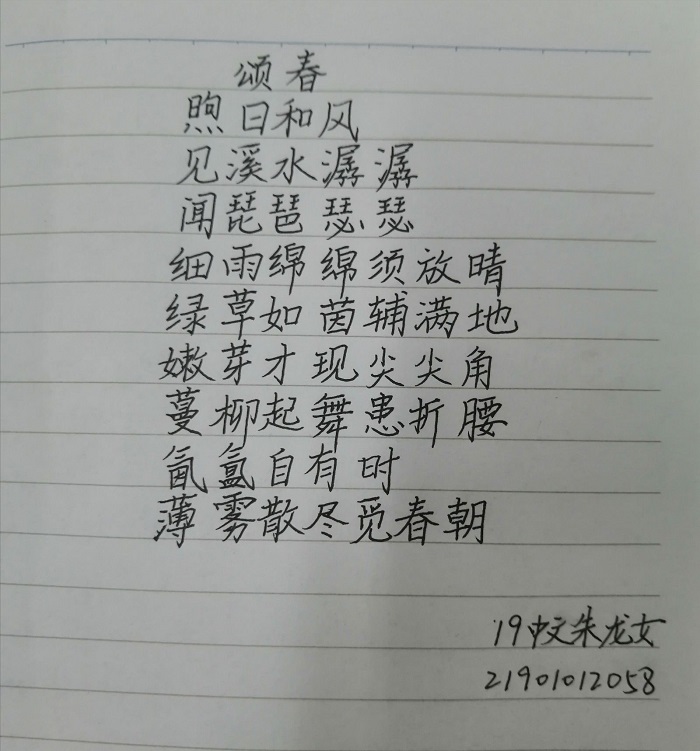 颂春
煦日和风
见溪水潺潺
闻琵琶瑟瑟
细雨绵绵须放晴
绿草如茵辅满地
嫩芽才现尖尖角
蔓柳起舞患折腰
氤氲自有时
薄雾散尽觅春朝
19中文朱龙女
21901012058